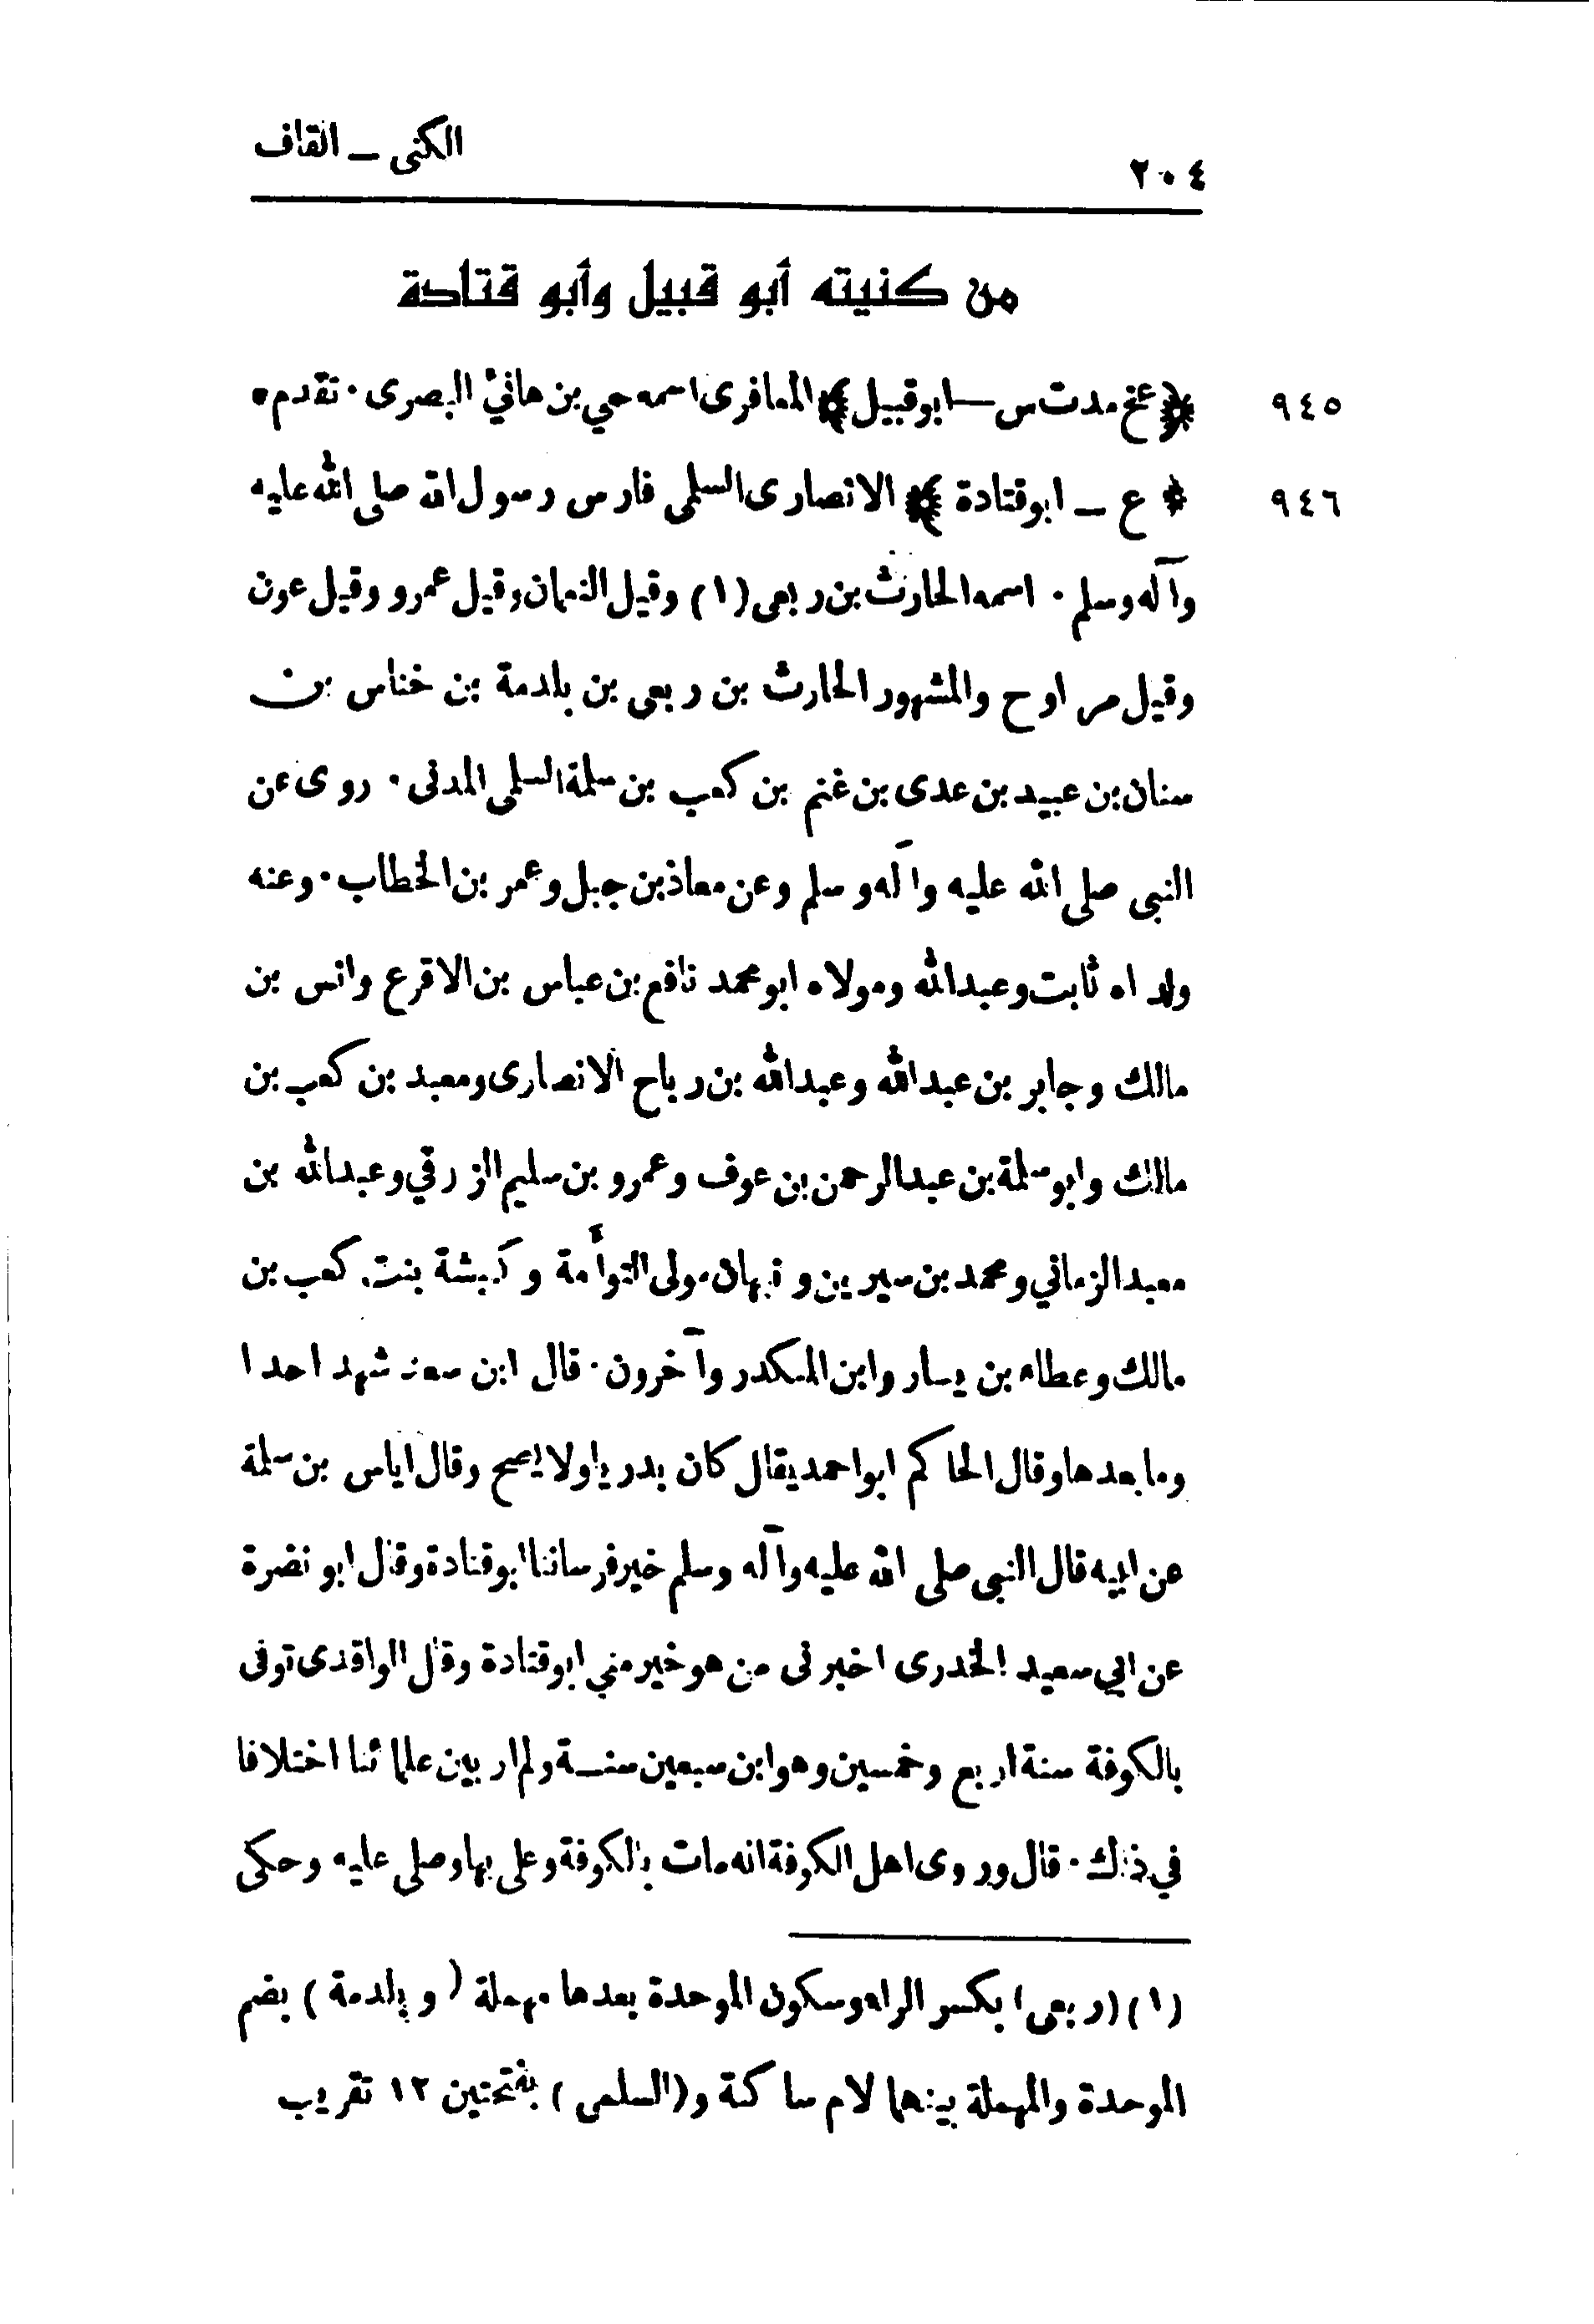 الكنى ــ القاف
٢٠٤
من كنيته أبو قبيل وأبو قتادة
٩٤٥ ﴿ عخ مد ت س ــ ابو قبيل ﴾ المعافرى اسمه حي بن هانئ البصرى ٠ تقدم ٠
٩٤٦ * ع ــ ابو قتادة ﴾ الانصارى السلمى فارس رسول الله صلى الله عليه
وآله وسلم ٠ اسمه الحارث بن ربعى (١) وقيل النعمان وقيل عمرو وقيل عون
وقيل مراوح والمشهور الحارث بن ربعى بن بلدمة بن خناس بن
سنان بن عبيد بن عدى بن غنم بن كعب بن سلمة السلمى المدنى ٠ روى عن
النبى صلى الله عليه وآله وسلم وعن معاذ بن جبل وعمر بن الخطاب ٠ وعنه
ولداه ثابت وعبدالله ومولاه ابو محمد نافع بن عباس بن الاقرع وانس بن
مالك وجابر بن عبدالله وعبدالله بن رباح الانصارى ومعبد بن كعب بن
مالك وابو سلمة بن عبدالرحمن بن عوف وعمرو بن سليم الزرقي وعبدالله بن
معبد الزماني ومحمد بن سيرين ونبهان مولى التوأمة وكبشة بنت كعب بن
مالك وعطاء بن يسار وابن المنكدر وآخرون ٠ قال ابن سعد شهد احدا
وما بعدها وقال الحاكم ابو احمد يقال كان بدريا ولا يصح وقال اياس بن سلمة
عن ابيه قال النبى صلى الله عليه وآله وسلم خير فرساننا ابو قتادة وقال ابو نضرة
عن ابي سعيد الخدرى اخبرنى من هو خير مني ابو قتادة وقال الواقدى توفى
بالكوفة سنة اربع وخمسين وهو ابن سبعين سنة ولم ار بين علمائنا اختلافا
في ذلك ٠ قال وروى اهل الكوفة انه مات بالكوفة وعلى بها وصلى عليه وحكى
(١) (ربعى) بكسر الراء وسكون الموحدة بعدها مهملة (وبلدمة) بضم
الموحدة والمهملة بينهما لام ساكنة و(السلمى) بفتحتين ١٢ تقريب